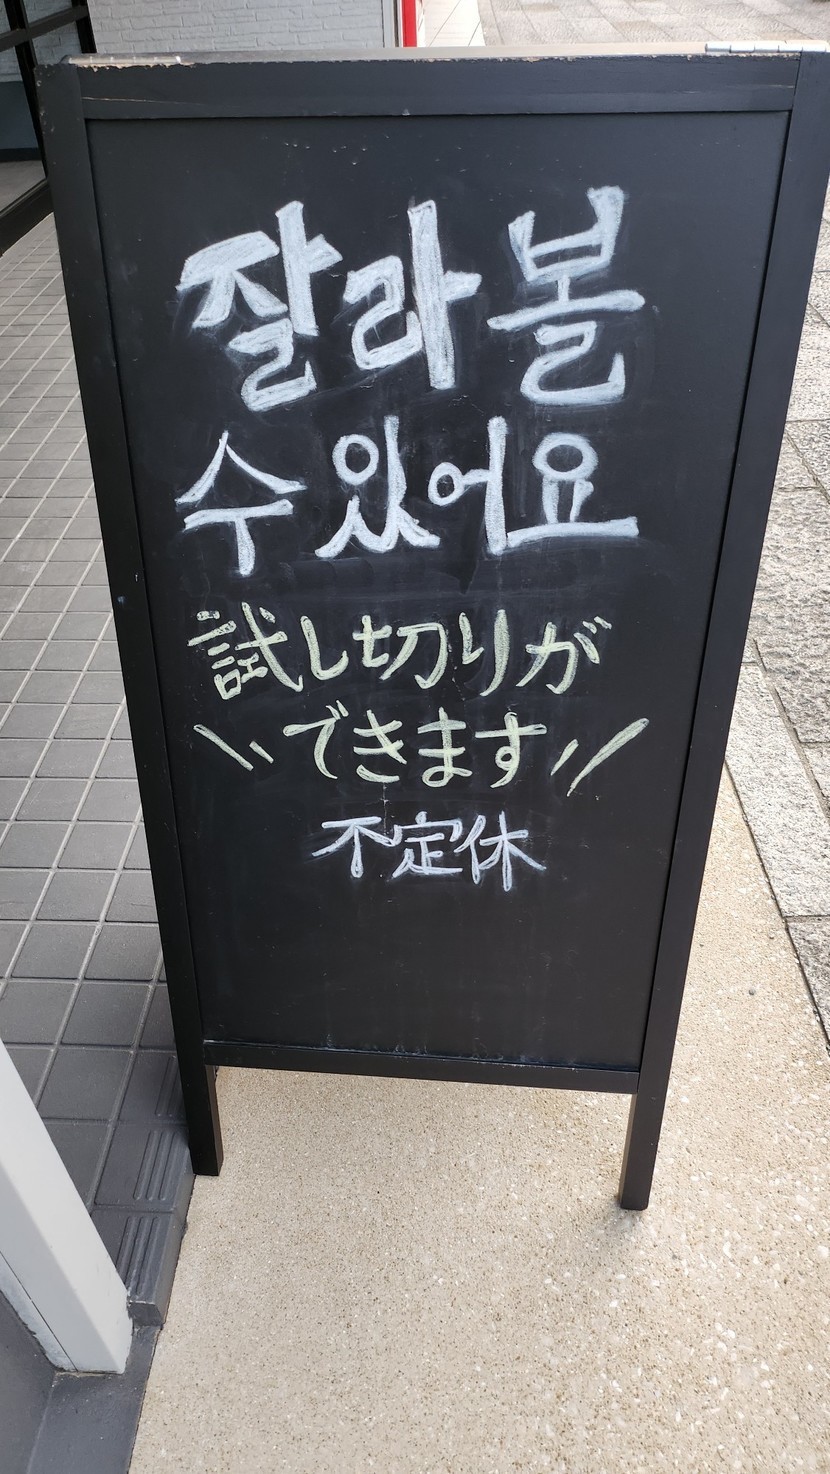 잘라볼
수있어요
試し切りが
できます
不定休